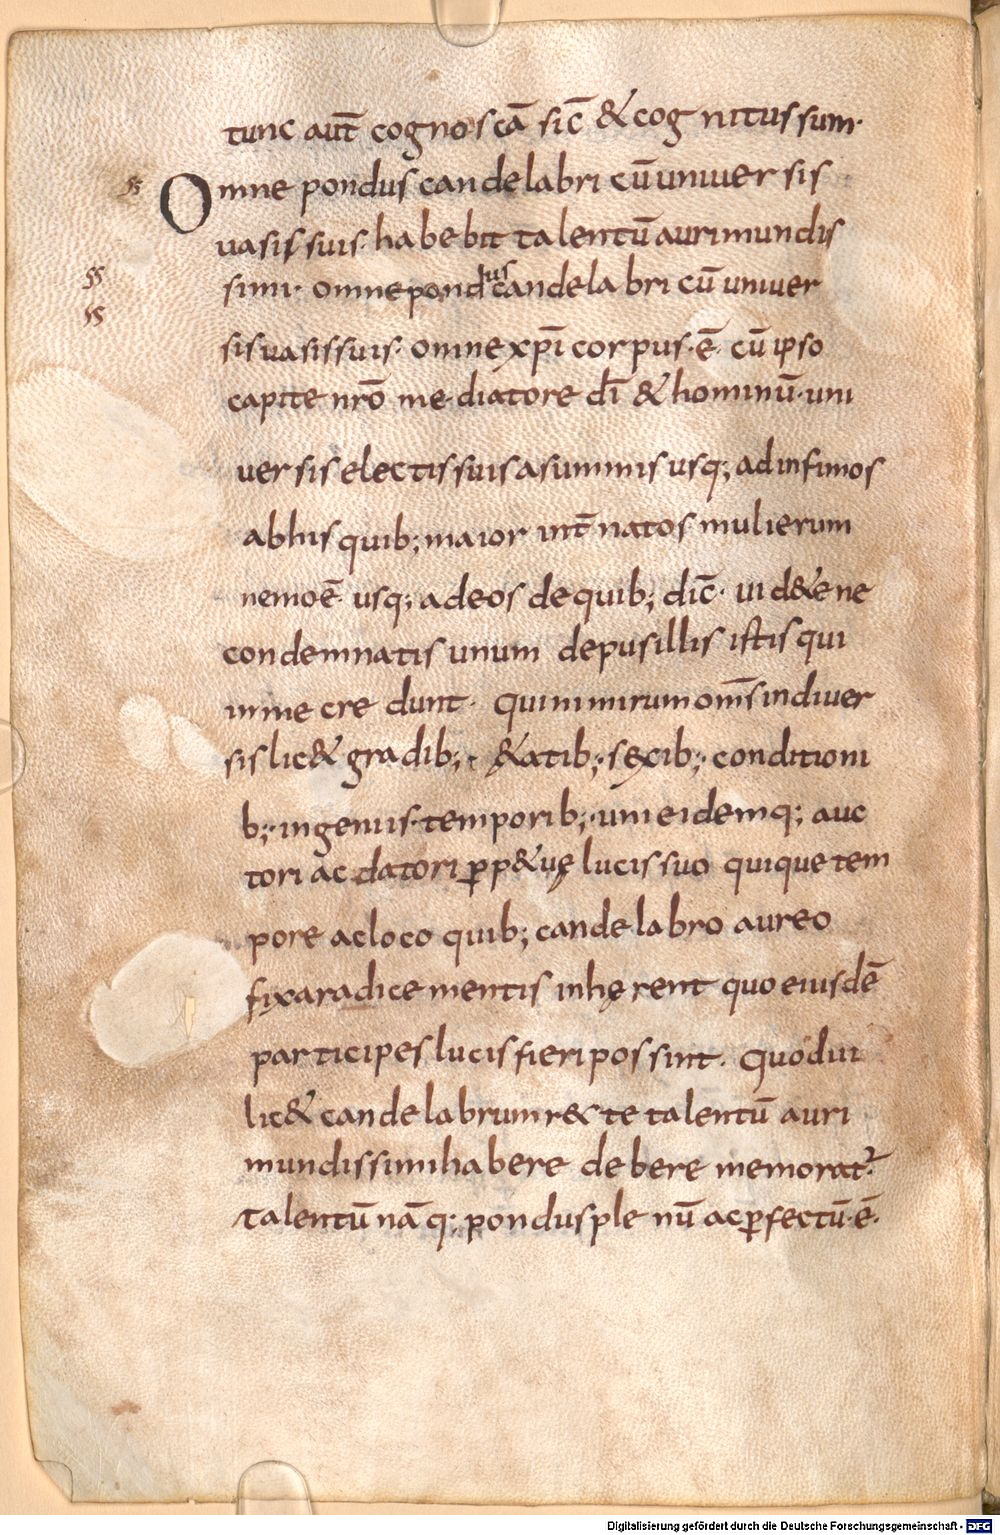 tunc aut̄ cognoscā sic̄ & cognitus sum·
Omne pondus candelabri cū uniuersis
uasis suis habebit talentū auri mundis
simi· omne pondus candelabri cū uniuer
sis uasis suis· omne xp̄i corpus·ē· cū ipso
capite nr̄o mediatore dī & hominū· uni
uersis electis suis a summis usq; ad infimos
ab his quib; maior int̄ natos mulierum
nemo ē· usq; ad eos de quib; dic̄· uid&e ne
condemnatis unum de pusillis istis qui
in me credunt· Qui nimirum om̄s in diuer
sis lic& gradib;· &atib;· sexib;· conditioni
b;· ingeniis· temporib;· uni eidemq; auc
tori ac datori perp&uę lucis suo quique tem
pore ac loco quib; candelabro aureo
fixa radice mentis inhęrent quo eiusdē
participes lucis fieri possint· Quod ui
lic& candelabrum recte talentū auri
mundissimi habere debere memorat᷑·
talentū nāq; pondus plenū ac perfectū·ē·
ss
ss
ss
Digitalisierung gefördert durch die Deutsche Forschungsgemeinschaft - DFG